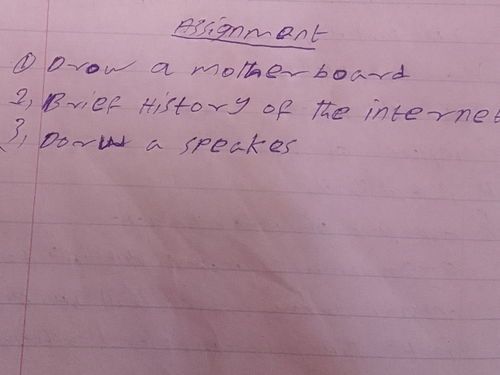 Assignment
① Drow a motherboard
2, Brief History of the internet
3, Dorw a speakes